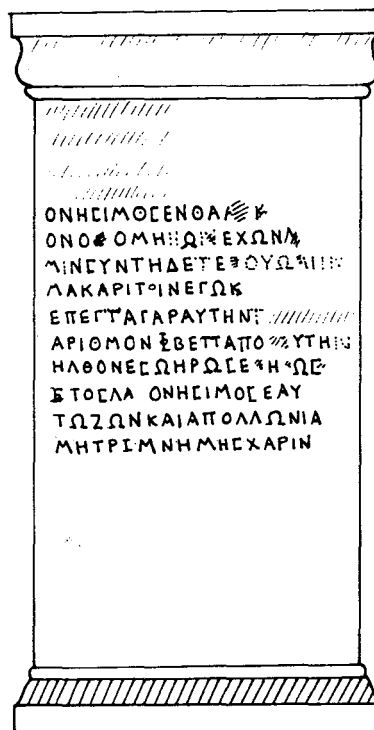 ΟΝΗϹΙΜΟϹΕΝΘΑ
ΕΧΩΝ
ΜΙΝϹΥΝΤΗΔΕΤΕ
ΜΑΚΑΡΙΤΟΙΝΕΓΩΚ
ΕΠΕϹΤΑΓΑΡΑΥΤΗΝ
ΑΡΙΘΜΟΝΞΒΕΤΤΑΠΟ ΥΤΗ
ΗΛΘΟΝΕϹΩΗΡΩϹΕ
ΕΤΟϹΛΑ ΟΝΗϹΙΜΟϹΕΑΥ
ΤΩΖΩΝΚΑΙΑΠΟΛΛΩΝΙΑ
ΜΗΤΡΙΜΝΗΜΗϹΧΑΡΙΝ